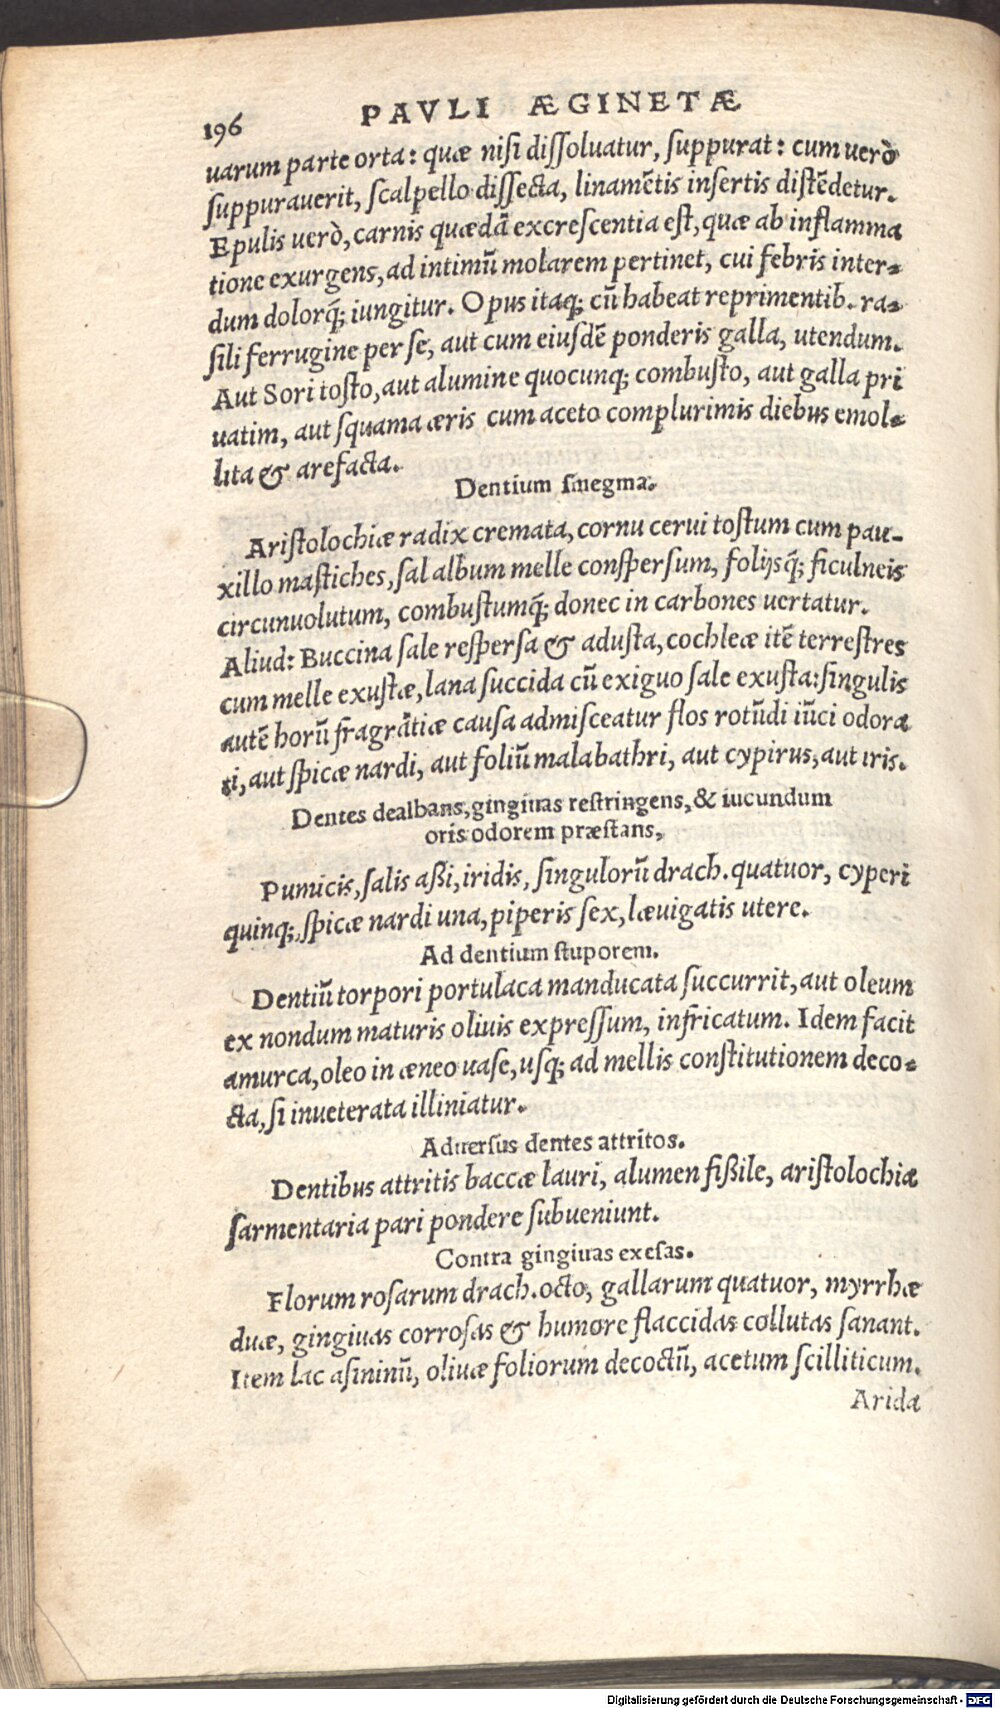 196 PAVLI ÆGINETÆ
uarum parte orta: quæ nisi dissoluatur, suppurat: cum uerò
suppurauerit, scalpello dissecta, linamẽtis insertis distẽdetur.
Epulis uerò, carnis quædã excrescentia est, quæ ab inflamma
tione exurgens, ad intimũ molarem pertinet, cui febris inter-
dum dolorq́; iungitur. Opus itaq; cũ habeat reprimentib. ra-
sili ferrugine per se, aut cum eiusdẽ ponderis galla, utendum.
Aut Sori tosto, aut alumine quocunq; combusto, aut galla pri
uatim, aut squama æris cum aceto complurimis diebus emol-
lita & arefacta.
Dentium smegma.
Aristolochiæ radix cremata, cornu cerui tostum cum pau-
xillo mastiches, sal album melle conspersum, folijsq́; ficulneis
circunuolutum, combustumq́; donec in carbones uertatur.
Aliud: Buccina sale respersa & adusta, cochleæ itẽ terrestres
cum melle exustæ, lana succida cũ exiguo sale exusta: singulis
autẽ horũ fragrãtiæ causa admisceatur flos rotũdi iũci odora
ti, aut spicæ nardi, aut foliũ malabathri, aut cypirus, aut iris.
Dentes dealbans, gingiuas restringens, & iucundum
oris odorem præstans,
Pumicis, salis aßi, iridis, singulorũ drach. quatuor, cyperi
quinq;, spicæ nardi una, piperis sex, læuigatis utere.
Ad dentium stuporem.
Dentiũ torpori portulaca manducata succurrit, aut oleum
ex nondum maturis oliuis expressum, infricatum. Idem facit
amurca, oleo in æneo uase, usq; ad mellis constitutionem deco-
cta, si inueterata illiniatur.
Aduersus dentes attritos.
Dentibus attritis baccæ lauri, alumen fißile, aristolochia
sarmentaria pari pondere subueniunt.
Contra gingiuas exesas.
Florum rosarum drach. octo, gallarum quatuor, myrrhæ
duæ, gingiuas corrosas & humore flaccidas collutas sanant.
Item lac asininũ, oliuæ foliorum decoctũ, acetum scilliticum.
Arida
Digitalisierung gefördert durch die Deutsche Forschungsgemeinschaft - DFG